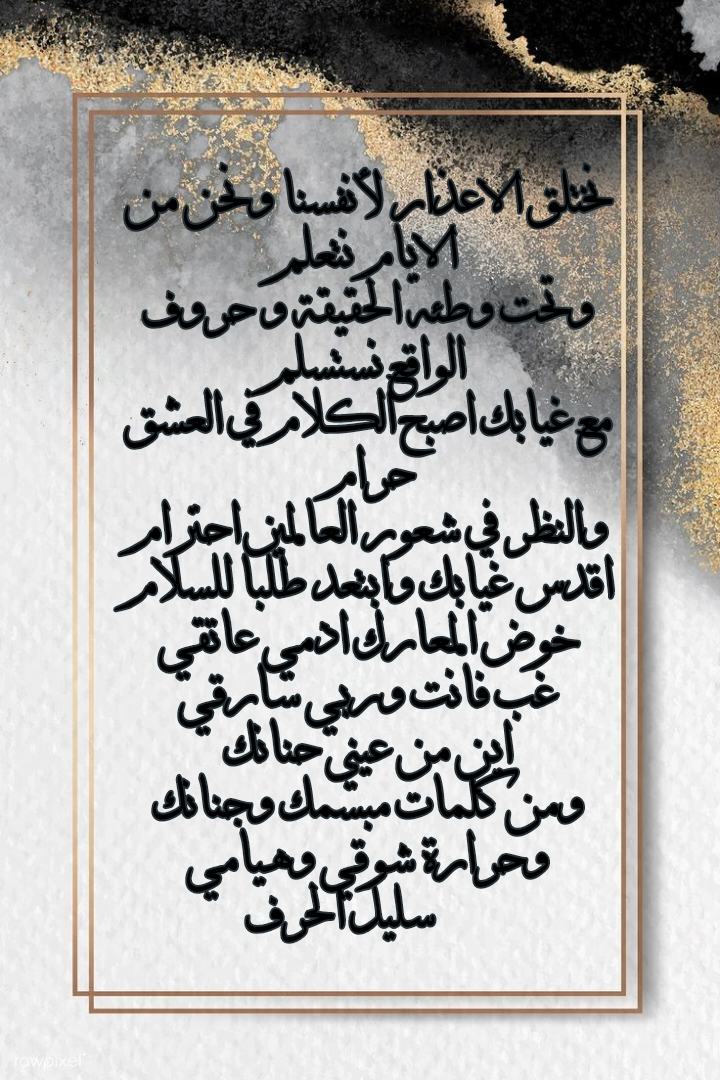 نختلق الاعذار لأنفسنا ونحن من
الايام نتعلم
وتحت وطئه الحقيقة وحروف
الواقع نستسلم
مع غيابك اصبح الكلام في العشق
حرام
والنظر في شعور العالمين احترام
اقدس غيابك وابتعد طلبا للسلام
خوض المعارك ادمي عاتقي
غب فانت وربي سارقي
اين من عيني حنانك
ومن كلمات مبسمك وجنانك
وحرارة شوقي وهيامي
سليل الحرف
rawpixel